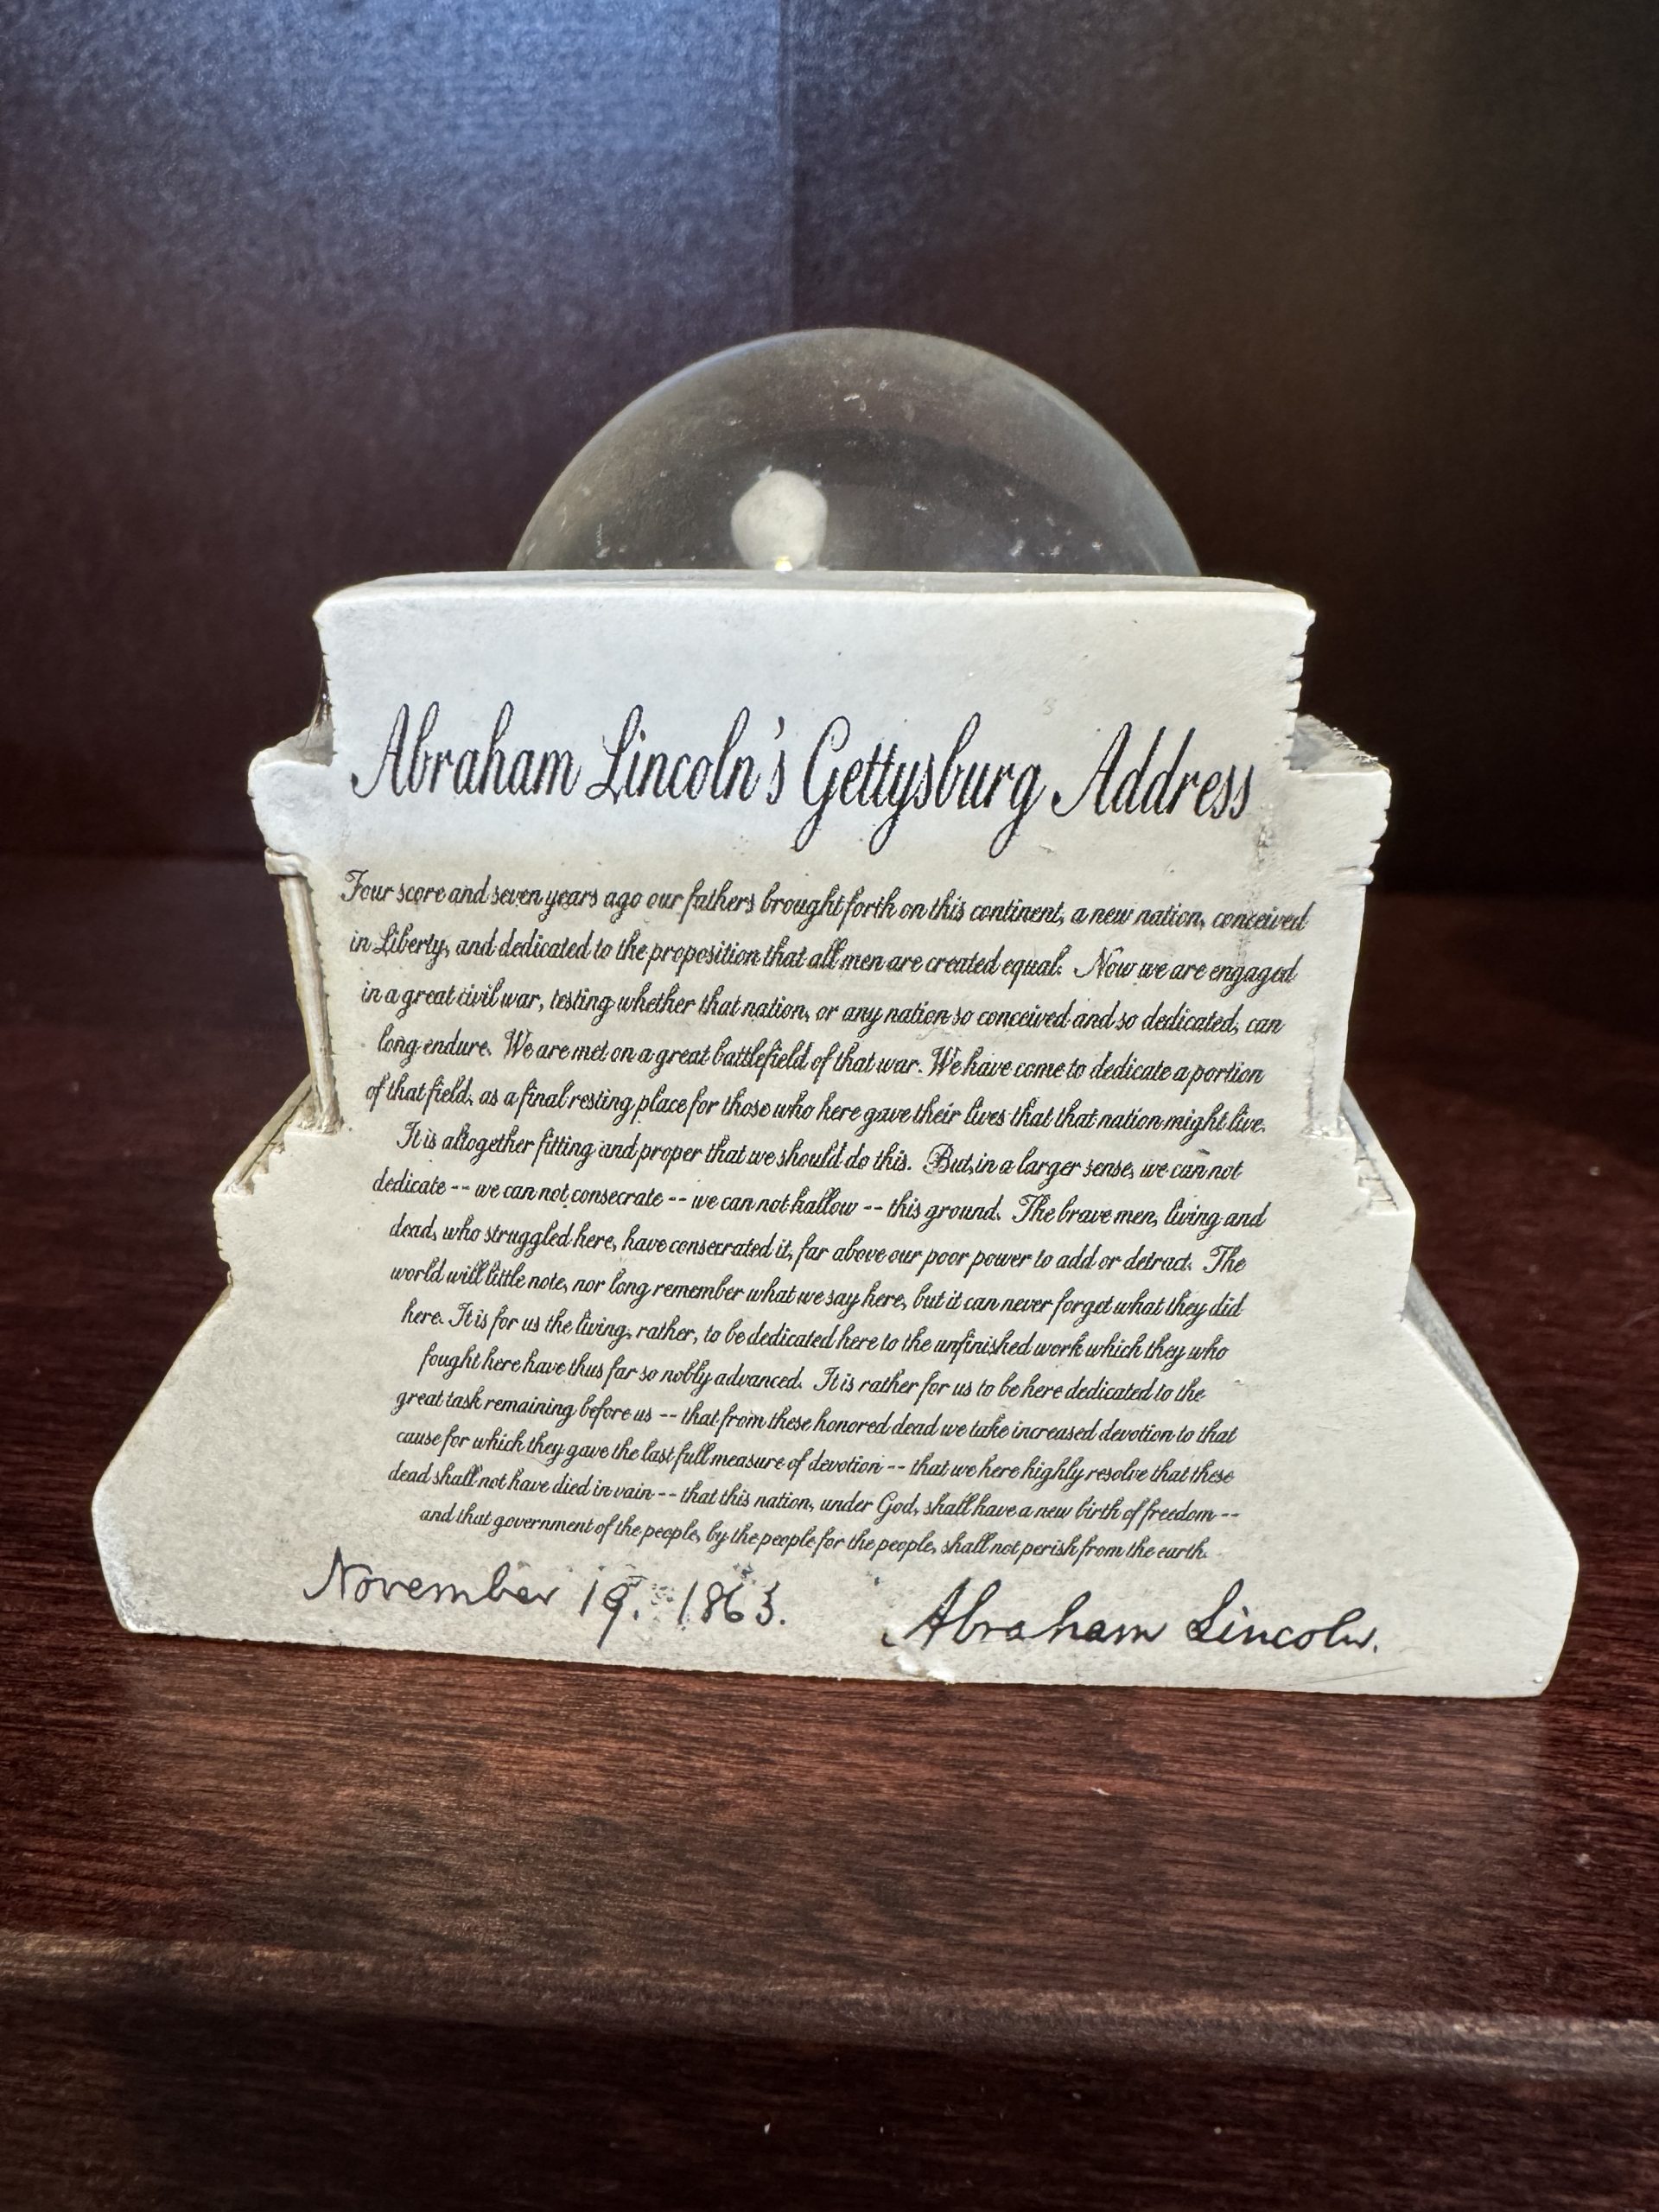 Abraham Lincoln's Gettysburg Address
Four score and seven years ago our fathers brought forth on this continent, a new nation, conceived
in Liberty, and dedicated to the proposition that all men are created equal. Now we are engaged
in a great civil war, testing whether that nation, or any nation so conceived and so dedicated, can
long endure. We are met on a great battlefield of that war. We have come to dedicate a portion
of that field, as a final resting place for those who here gave their lives that that nation might live.
It is altogether fitting and proper that we should do this. But, in a larger sense, we can not
dedicate -- we can not consecrate -- we can not hallow -- this ground. The brave men, living and
dead, who struggled here, have consecrated it, far above our poor power to add or detract. The
world will little note, nor long remember what we say here, but it can never forget what they did
here. It is for us the living, rather, to be dedicated here to the unfinished work which they who
fought here have thus far so nobly advanced. It is rather for us to be here dedicated to the
great task remaining before us -- that from these honored dead we take increased devotion to that
cause for which they gave the last full measure of devotion -- that we here highly resolve that these
dead shall not have died in vain -- that this nation, under God, shall have a new birth of freedom --
and that government of the people, by the people for the people, shall not perish from the earth.
November 19. 1863. Abraham Lincoln.